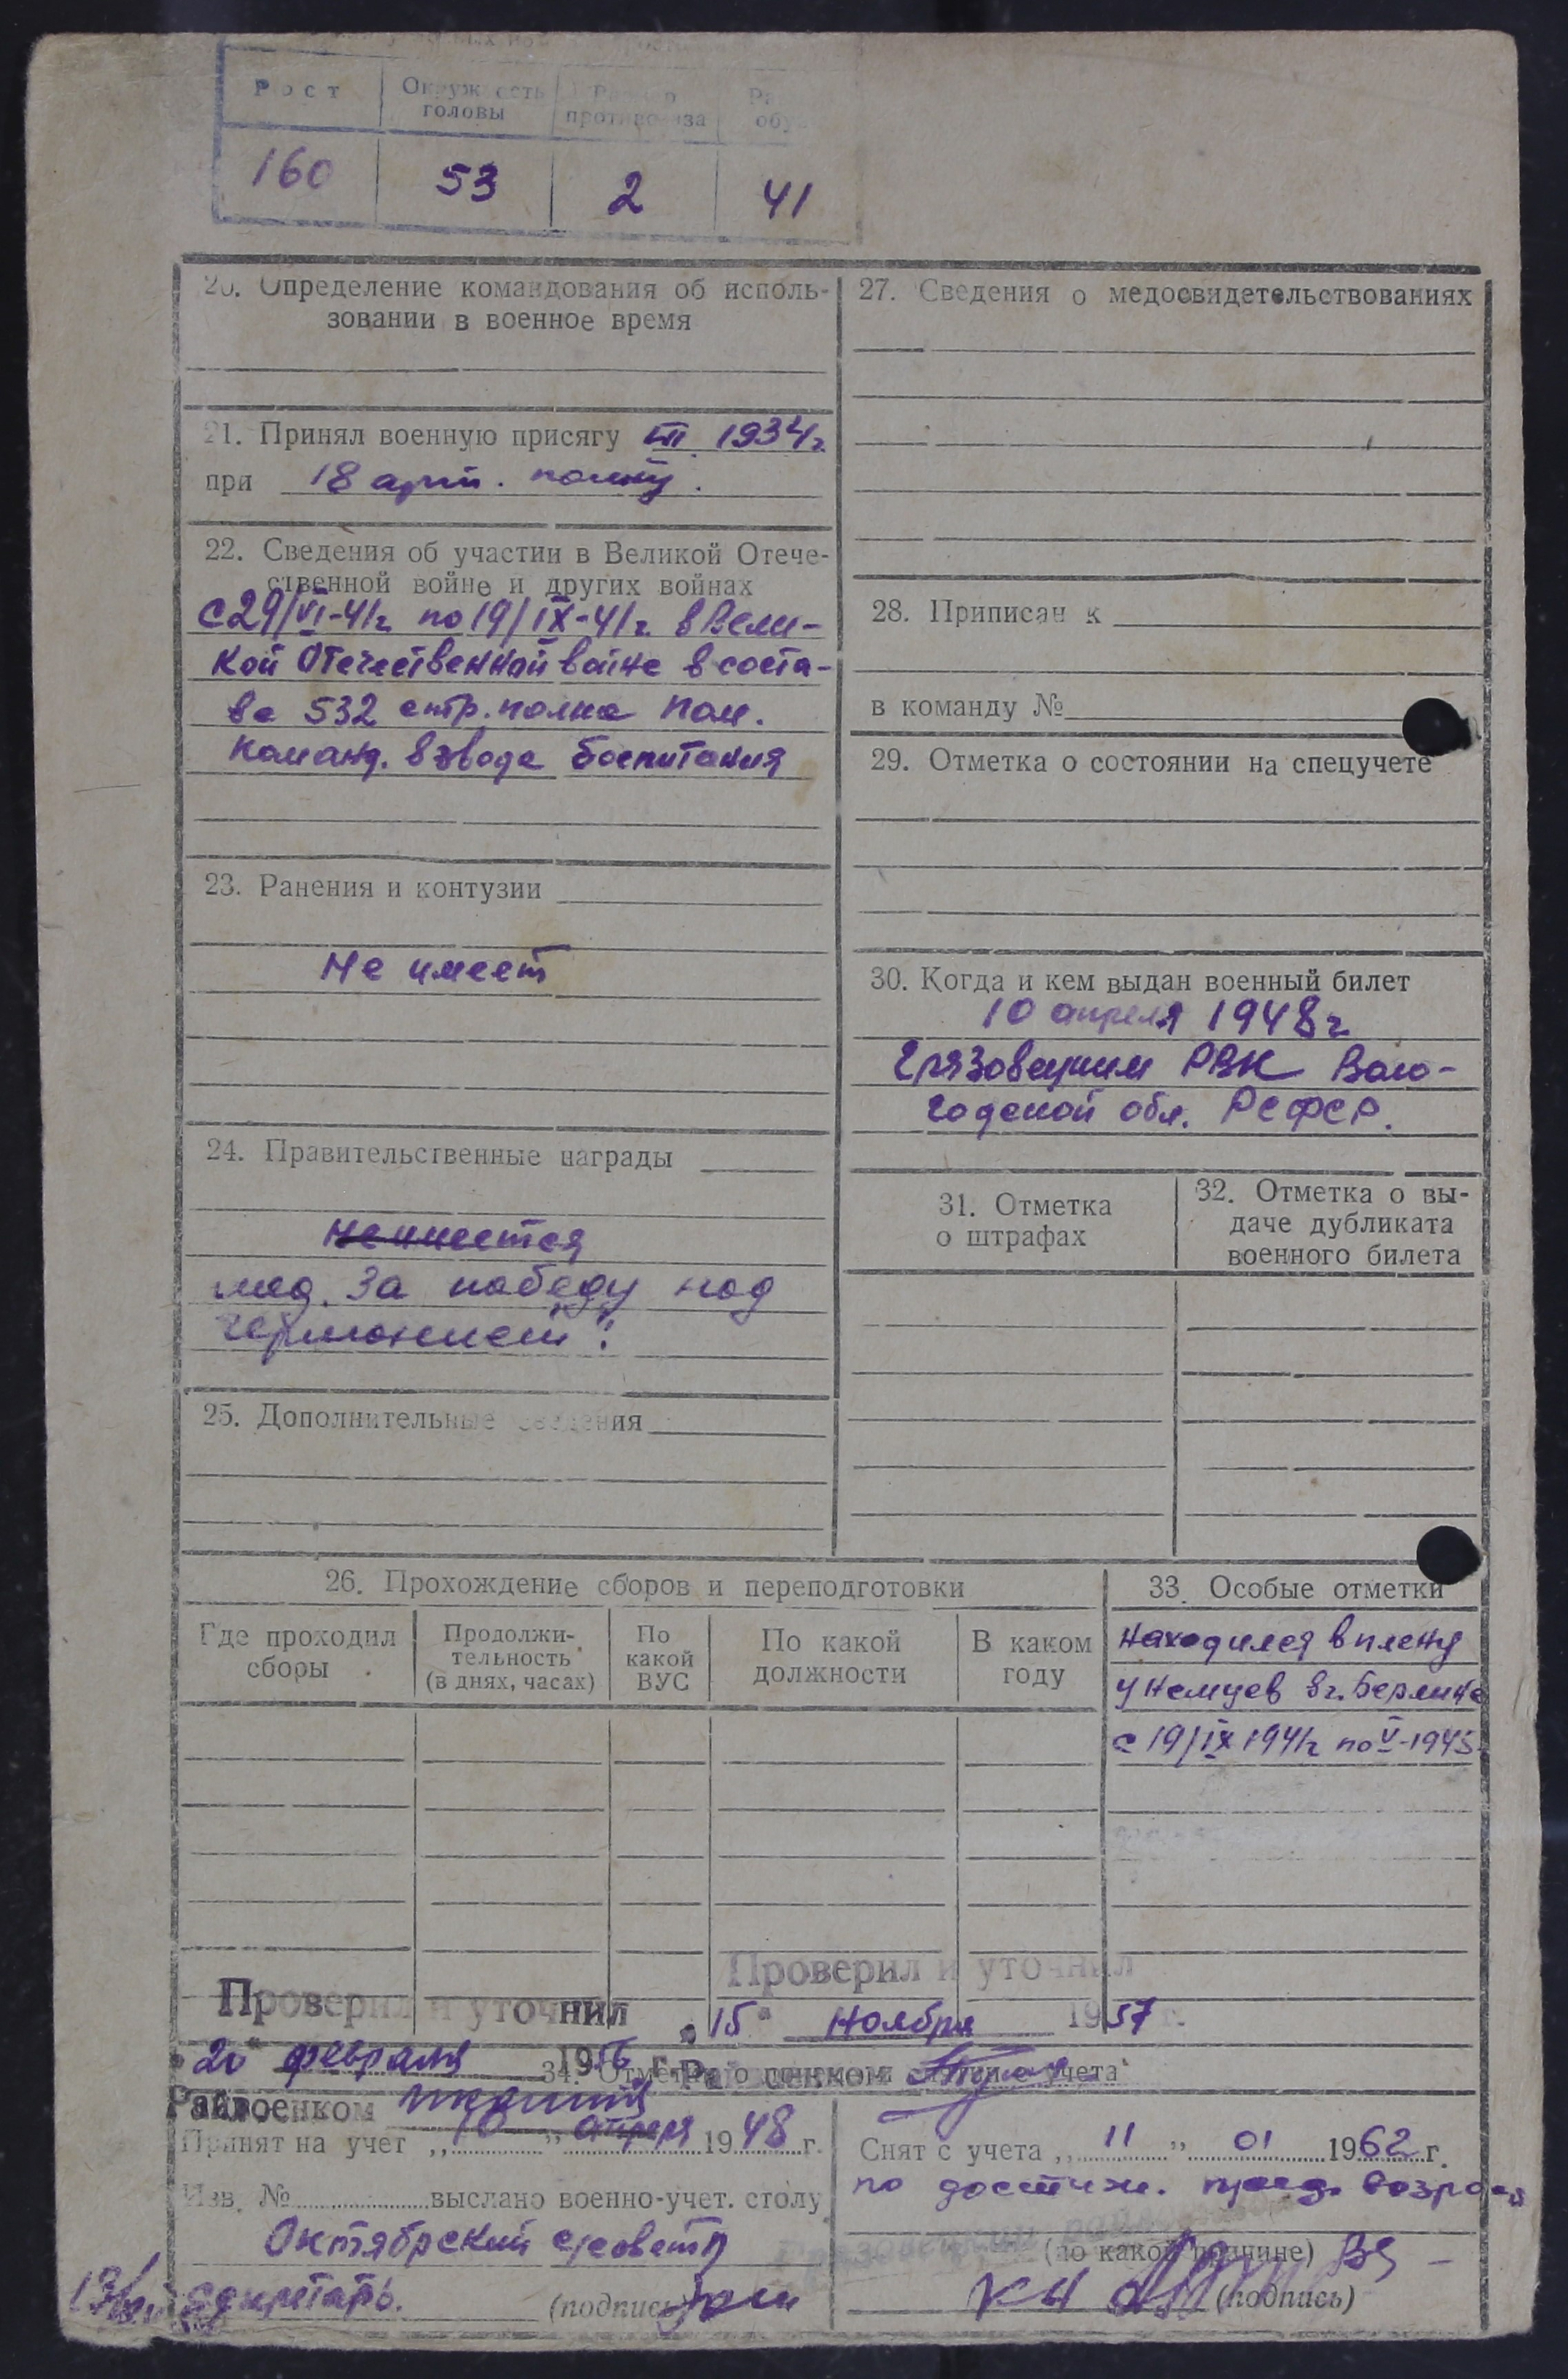 Рост
Окружность головы
Размер противогаза
160 53 2 41
20. Определение командования об исполь-
зовании в военное время
21. Принял военную присягу 1934 г.
при 18 арт. полку.
22. Сведения об участии в Великой Отече-
ственной войне и других войнах
с 29/VI-41г. по 19/IX-41г. в Вели-
кой Отечественной войне в соста-
ве 532 стр. полка пом.
команд. взвода
23. Ранения и контузии
Не имеет
24. Правительственные награды
не имеется
мед. За победу над
германией".
25. Дополнительные сведения
26. Прохождение сборов и переподготовки
Где проходил сборы
Продолжи-
тельность
(в днях, часах)
По какой ВУС
По какой должности
В каком году
27. Сведения о медосвидетельствованиях
28. Приписан к
в команду №
29. Отметка о состоянии на спецучете
30. Когда и кем выдан военный билет
10 апреля 1948 г.
Грязовецким РВК Воло-
годской обл. РСФСР.
31. Отметка
о штрафах
32. Отметка о вы-
даче дубликата
военного билета
33. Особые отметки
находился в плену
у немцев в г. Берлине
с 19/IX 1941г по V-1945
Проверил и уточнил
„15" ноября 1957 г.
Проверил и уточнил
„20" февраля 1956 г.
Райвоенком
34. Отметка о учета
Райвоенком
Принят на учет „10" апреля 1948 г.
Изв. № выслано военно-учет. столу
Октябрский с/совета
секретарь. (подпись)
Снят с учета „11" 01 1962 г.
по достиж. пред. возраста
(по какой причине)
(подпись)